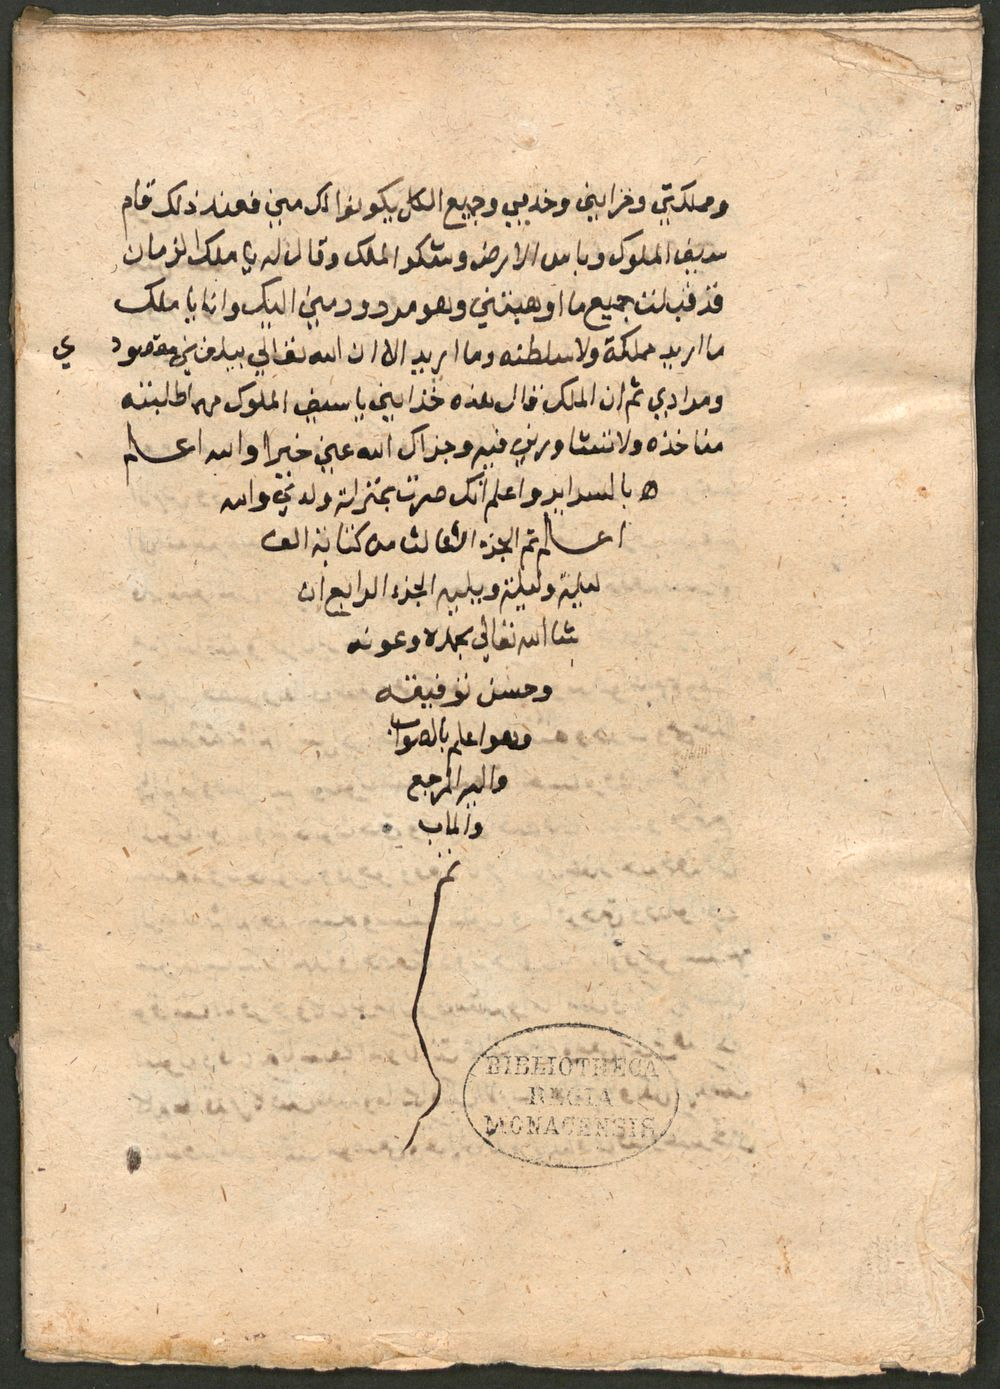 ومملكتي وخزايني وخدمي وجميع الكل يكونوا لك مني فعند ذلك قام
سيف الملوك وباس الارض وشكر الملك وقال له يا ملك الزمان
قد قبلت جميع ما اوهبتني وهو مردود مني اليك وانا يا ملك
ما اريد مملكة ولا سلطنه وما اريد الا ان الله تعالي يبلغني مقصود ي
ومرادي ثم ان الملك قال هذه خزايني يا سيف الملوك مهما طلبته
منا خذه ولا تتشاورني فيه وجزاك الله عني خيرا والله اعلم
ه بالسراير واعلم انك صرت بمنزلة ولدي والله
اعلم تم الجزء الثالث من كتابة الف
ليلة وليلة ويليه الجزء الرابع ان
شا الله تعالي بحمده وعونه
وحسن توفيقه
وهو اعلم بالصواب
واليه المرجع
والماب
تم
BIBLIOTHECA
REGIA
MONACENSIS